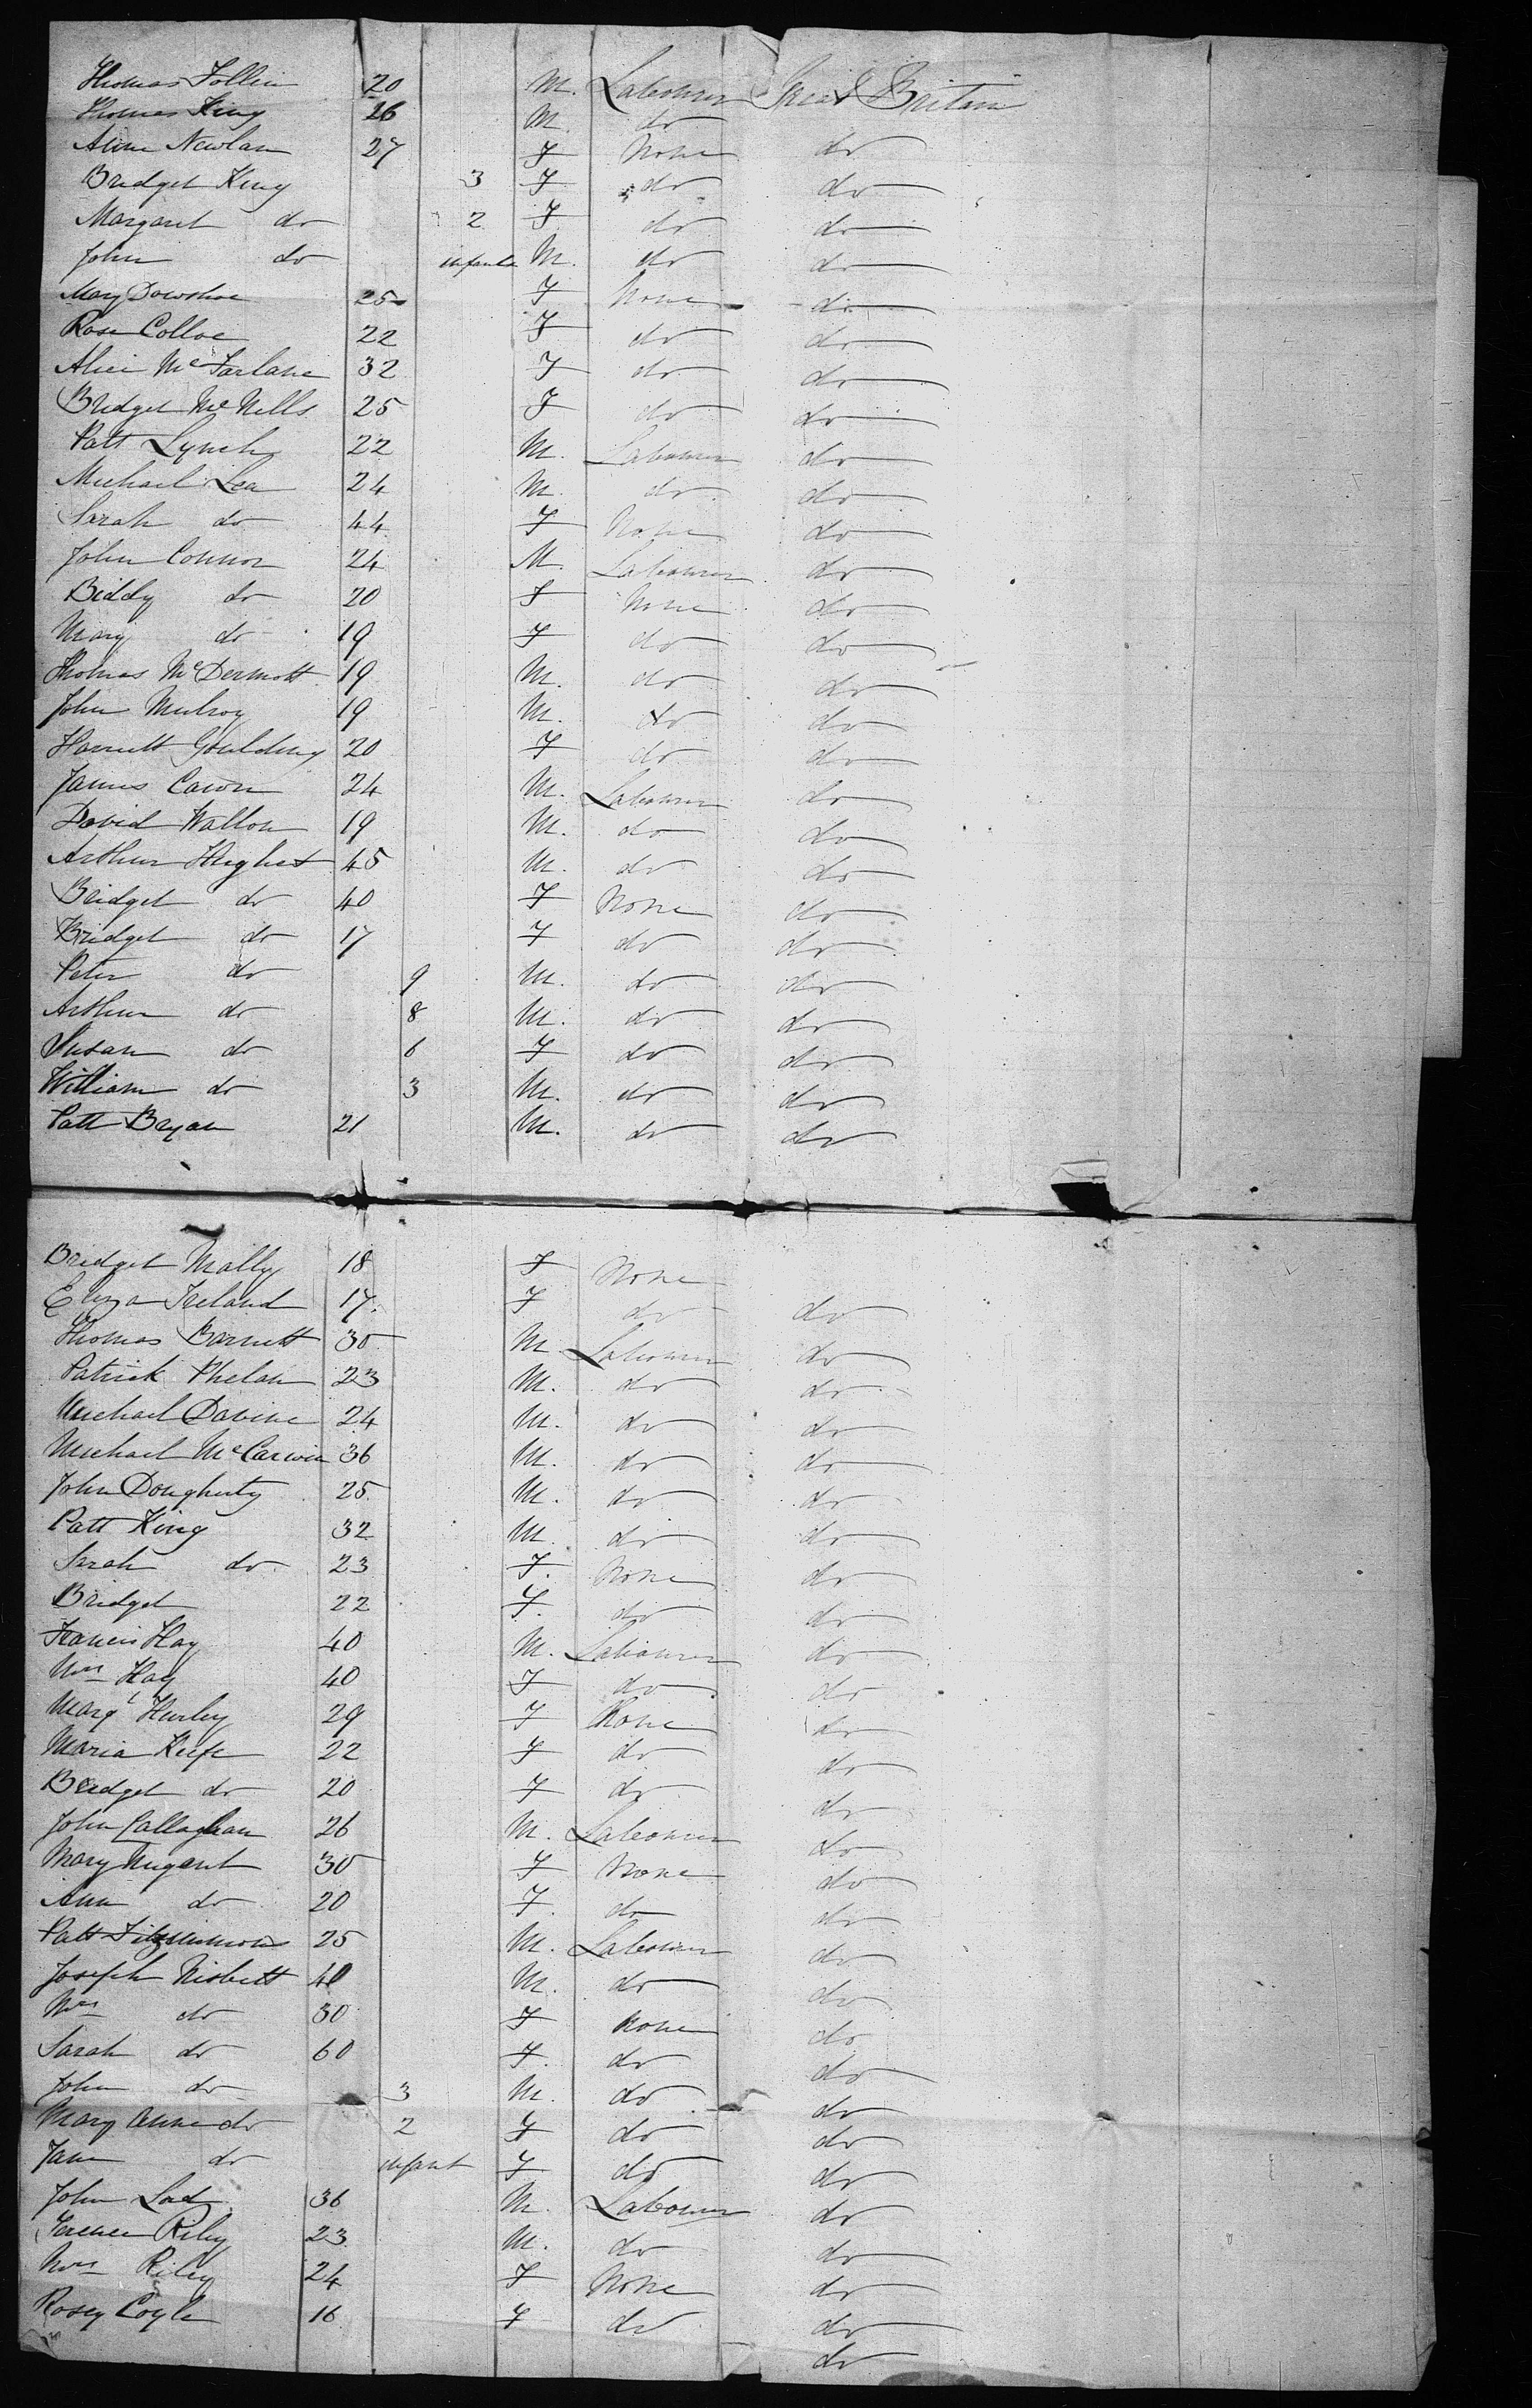 Thomas 20 M. Labourer Great Britain
Thomas King 26 M. do do
Anne Newlan 27 F None do
Bridget King 3 F do do
Margaret do 2 F do do
John do infant M. do do
Mary 25 F None do
Rose Colloe 22 F do do
Alice McFarlane 32 F do do
Bridget McNells 25 F do do
Patt Lynch 22 M. Labourer do
Michael Lea 24 M. do do
Sarah do 44 F None do
John Connor 24 M. Labourer do
Biddy do 20 F None do
Mary do 19 F do do
Thomas McDermott 19 M. do do
John Mulroy 19 M. do do
Harriett Goulding 20 F do do
James 24 M. Labourer do
David Wallon 19 M. do do
Arthur Hughes 45 M. do do
Bridget do 40 F None do
Bridget do 17 F do do
Peter do 9 M. do do
Arthur do 8 M. do do
Susan do 6 F do do
William do 3 M. do do
Patt Bryan 21 M. do do
Bridget Mally 18 F None
Eliza Ireland 17. F do do
Thomas Barnett 30 M Labourer do
Patrick Phelan 23 M. do do
Michael Davine 24 M. do do
Michael 36 M. do do
John Dougherty 25 M. do do
Patt King 32 M. do do
Sarah do 23 F. None do
Bridget 22 F. do do
Francis Hay 40 M. Labourer do
Mrs Hay 40 F do do
Margt Hurley 29 F None do
Maria Keefe 22 F do do
Bridget do 20 F do do
John Callaghan 26 M. Labourer do
Mary Nugent 30 F None do
Ann do 20 F. do do
Patt Fitzsimmons 25 M. Labourer do
Joseph Nisbett 40 M. do do
Mrs do 30 F None do
Sarah do 60 F. do do
John do 3 M. do do
Mary Anne do 2 F do do
Jane do infant F do do
John Lad 36 M. Labourer do
Terence Riley 23 M. do do
Mrs Riley 24 F None do
Rosey Coyle 16 F do do
do